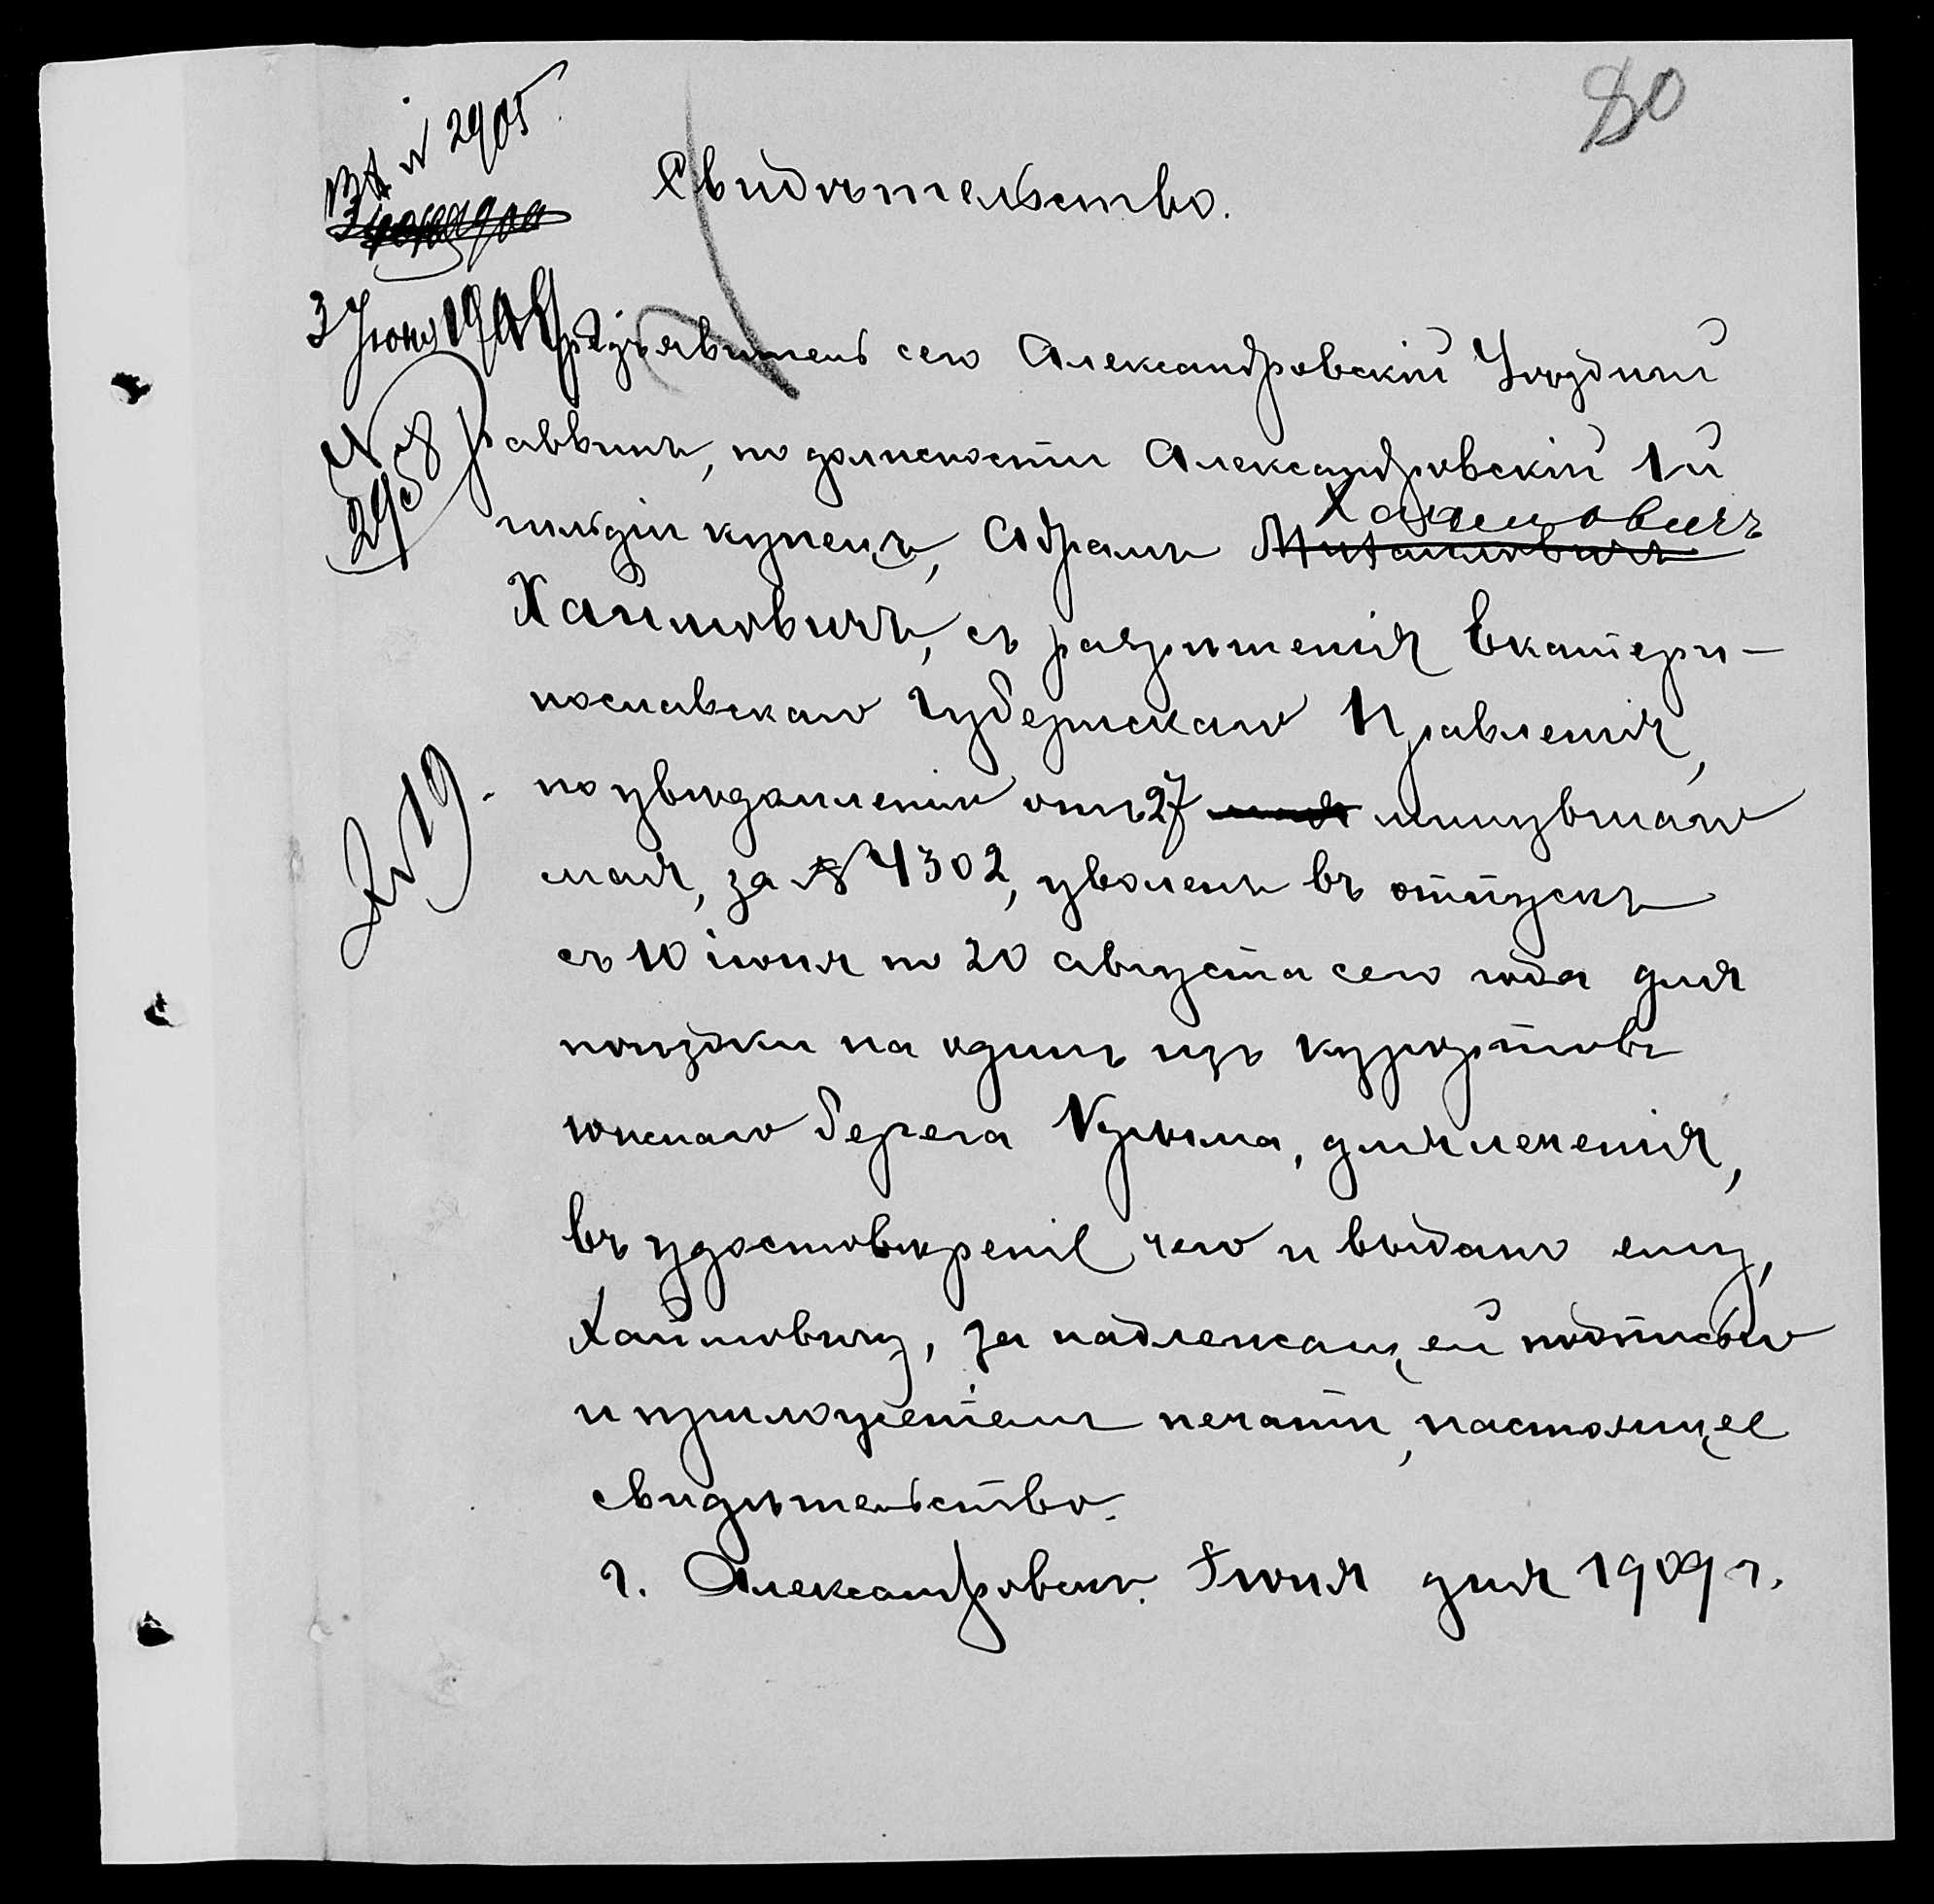 80
Вх № 2905
3 Июня 1909
№ 2908
№ 19.
Свидѣтельство.
Предъявитель сего Александровскій Уѣздный
раввинъ, по должности Александровскій 1й
гильдіи купецъ, Абрамъ Михаиловичъ Хаимовичъ
Хаимовичъ, съ разрѣшенія Екатери-
нославскаго Губернскаго Правленія,
по увѣдомленію отъ 27 мая минувшаго
мая, за № 4302, уволенъ въ отпускъ
съ 10 іюня по 20 августа сего года для
поѣздки на одинъ изъ курортовъ
южнаго берега Крыма, для леченія,
въ удостовѣреніе чего и выдано ему,
Хаимовичу, за надлежащей подписью
и приложеніемъ печати, настоящее
свидѣтельство.
г. Александровскъ. Іюня дня 1909 г.